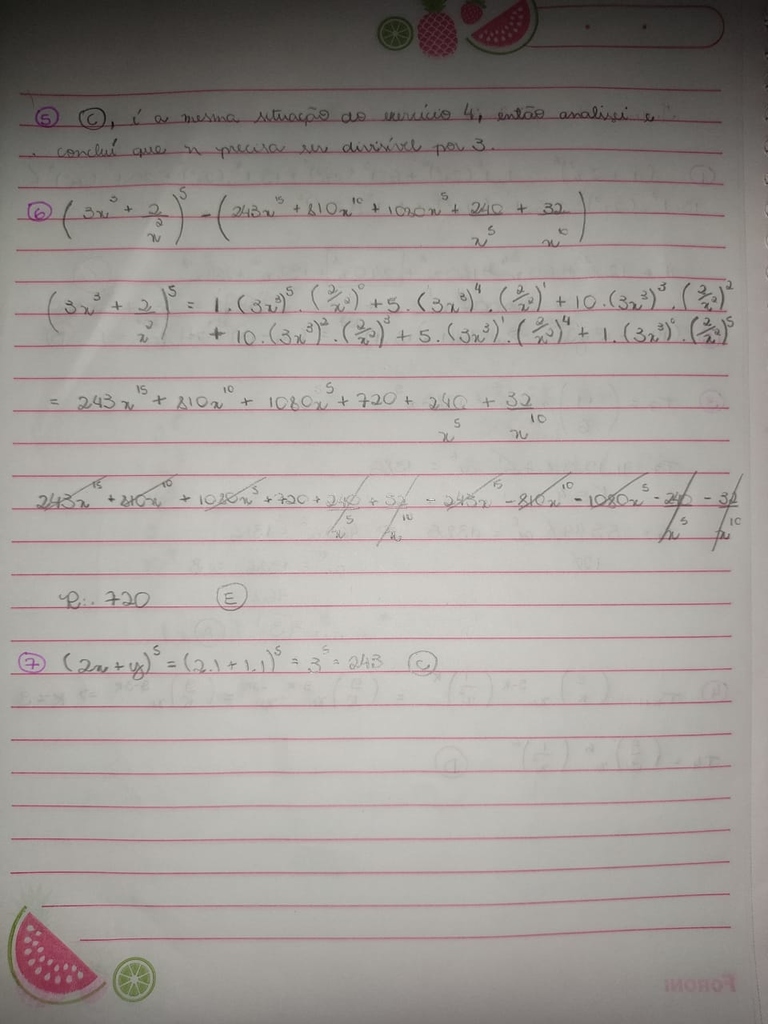 5 C, é a mesma situação do exercício 4, então analisei e
concluí que n precisa ser divisível por 3.
6 (3x³ + 2/x²)⁵ - (243x¹⁵ + 810x¹⁰ + 1080x⁵ + 240/x⁵ + 32/x¹⁰)
(3x³ + 2/x²)⁵ = 1.(3x³)⁵.(2/x²)⁰ + 5.(3x³)⁴.(2/x²)¹ + 10.(3x³)³.(2/x²)²
+ 10.(3x³)².(2/x²)³ + 5.(3x³)¹.(2/x²)⁴ + 1.(3x³)⁰.(2/x²)⁵
= 243x¹⁵ + 810x¹⁰ + 1080x⁵ + 720 + 240/x⁵ + 32/x¹⁰
243x¹⁵ + 810x¹⁰ + 1080x⁵ + 720 + 240/x⁵ + 32/x¹⁰ - 243x¹⁵ - 810x¹⁰ - 1080x⁵ - 240/x⁵ - 32/x¹⁰
R:. 720 E
7 (2x+y)⁵ = (2.1 + 1.1)⁵ = 3⁵ = 243 C
FORONI